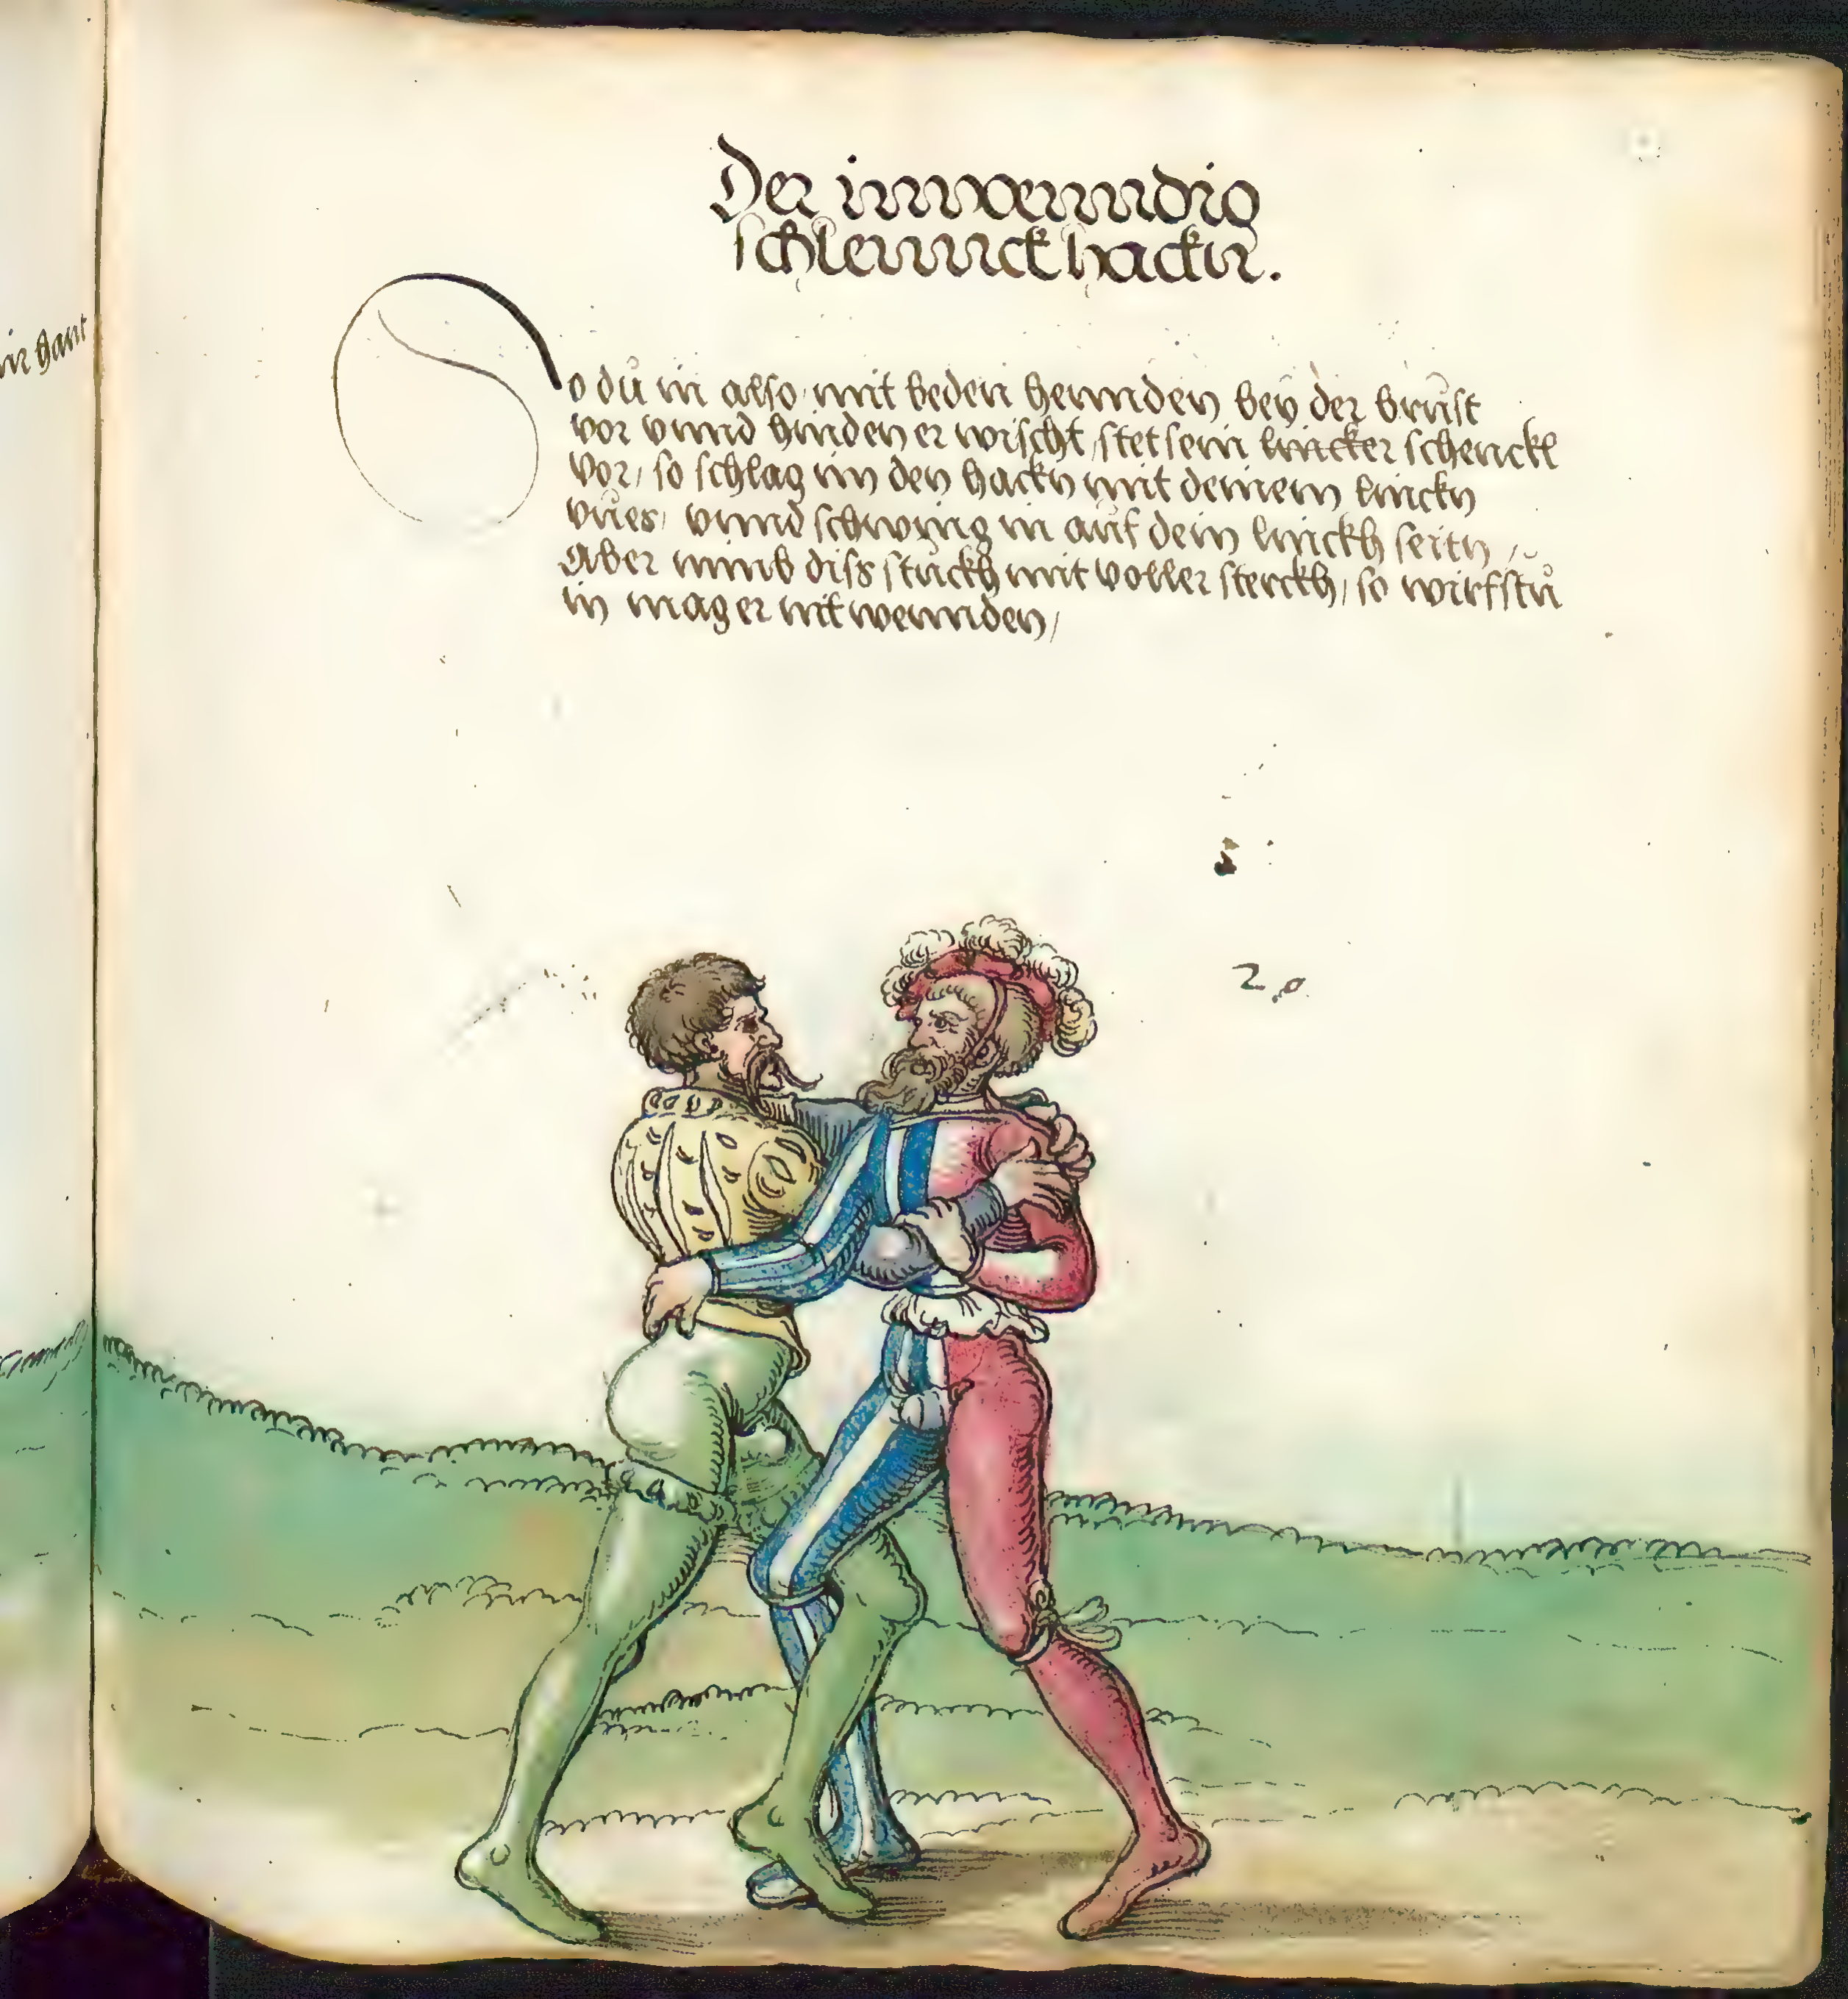 Der innwenndig
schlennckhackn.
o du in also mit beden hennden bey der brust
vor vnnd hinden er wischt, stet sein lincker schenckl
vor, so schlag im den hackn mit deinem linckn
vues, vnnd schwing in auf dein linckh seitn,
Aber nimb diss stuckh mit voller sterckh, so wirfstu
in mag er nit wennden,
20